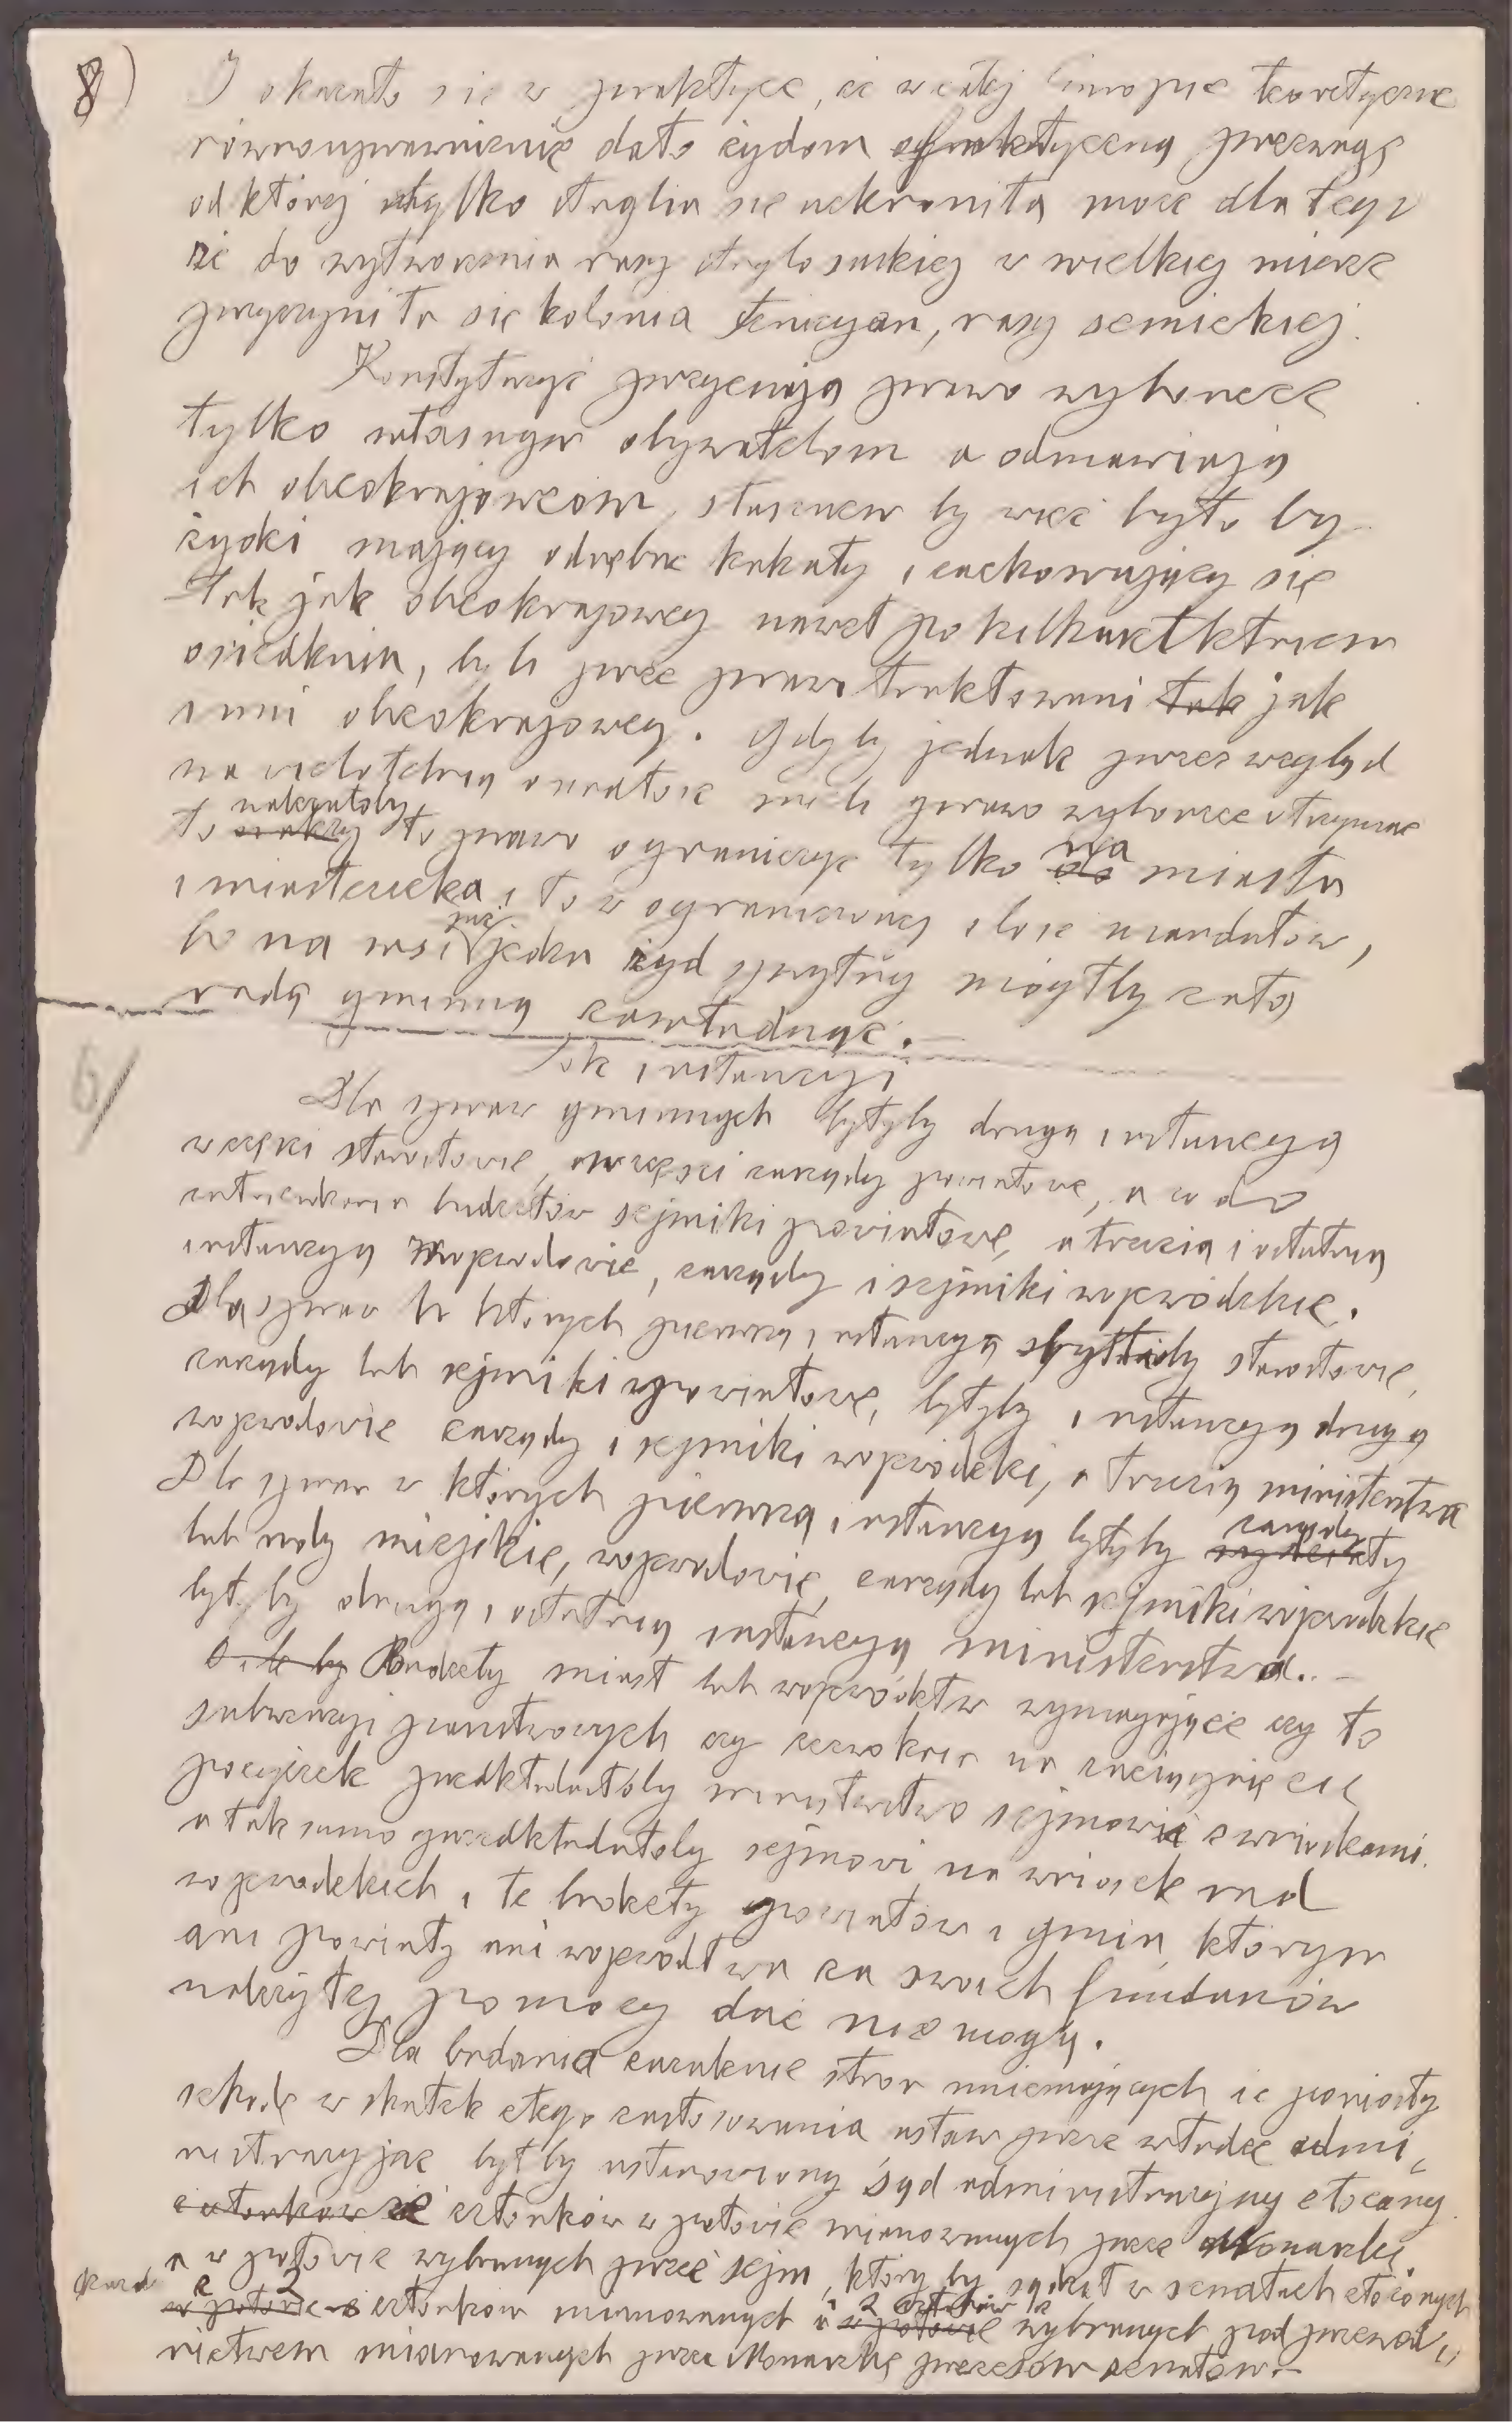 8)
I okazało się w praktyce, że w całej Europie teoretyczne
równouprawnienie dało żydom faktyczną przewagę
od której tylko Anglia się uchroniła może dla tego
że do wytworzenia rasy anglosaskiej w wielkiej mierze
przyczyniła się kolonia Fenicyan, rasy semickiej.
Konstytucye przyznają prawo wyborcze
tylko własnym obywatelom a odmawiają
ich obcokrajowcom, słusznem by więc było by
żydzi mający odrębne kahały i zachowujący się
tak jak obcokrajowcy nawet po kilkuset letniem
osiedleniu, byli przez prawo traktowani tak jak
inni obcokrajowcy. Gdyby jednak przez wzgląd
na mieli prawo wyborcze otrzymać
należałoby
to to prawo ograniczyć tylko na miasta
i miasteczka i to w ograniczonej ilości mandatów,
już
bo na wsi jeden żyd sprytny mógłby całą
radą gminną zawładnąć.
6/
Tok instancyi
Dla spraw gminnych byłyby drugą instancyą
w części starostowie, w części zarządy powiatowe, a co do
zatwierdzenia budżetów sejmiki powiatowe, a trzecią i ostatnią
instancyą wojewodowie, zarządy i sejmiki wojewódzkie.
Dla spraw w których pierwszą instancyą byliby starostowie,
zarządy lub sejmiki powiatowe, byłyby instancyą drugą
wojewodowie zarządy i sejmiki wojewódzki, a trzecią ministerstwa
Dla spraw w których pierwszą instancyą byłyby zarządy
lub rady miejskie, wojewodowie, zarządy lub sejmiki wojewódzkie
byłyby drugą i ostatnią instancyą ministerstwa. –
O ile by Budżety miast lub wojewódstw wymagające czy to
subwencyi państwowych czy zezwolenia na zaciągnięcie
pożyczek przedkładałoby ministerstwo sejmowi z wnioskami.
a tak samo przedkładałoby sejmowi na wniosek rad
wojewodzkich i te budżety powiatów i gmin, którym
ani powiaty ani wojewódstwa ze swoich funduszów
należytej pomocy dać nie mogą.
Dla badania zażaleń stron mniemających że poniosły
szkodę w skutek złego zastosowania ustaw przez władze admi„
nistracyjne byłby ustanowiony Sąd administracyjny złożony
z członków w połowie mianowanych przez Monarchę
a w połowie wybranych przez sejm, który by sądził w senatach złożonych
z 2 członków mianowanych i 2 członków wybranych pod przewod„
nictwem mianowanych przez Monarchę prezesów senatów. –